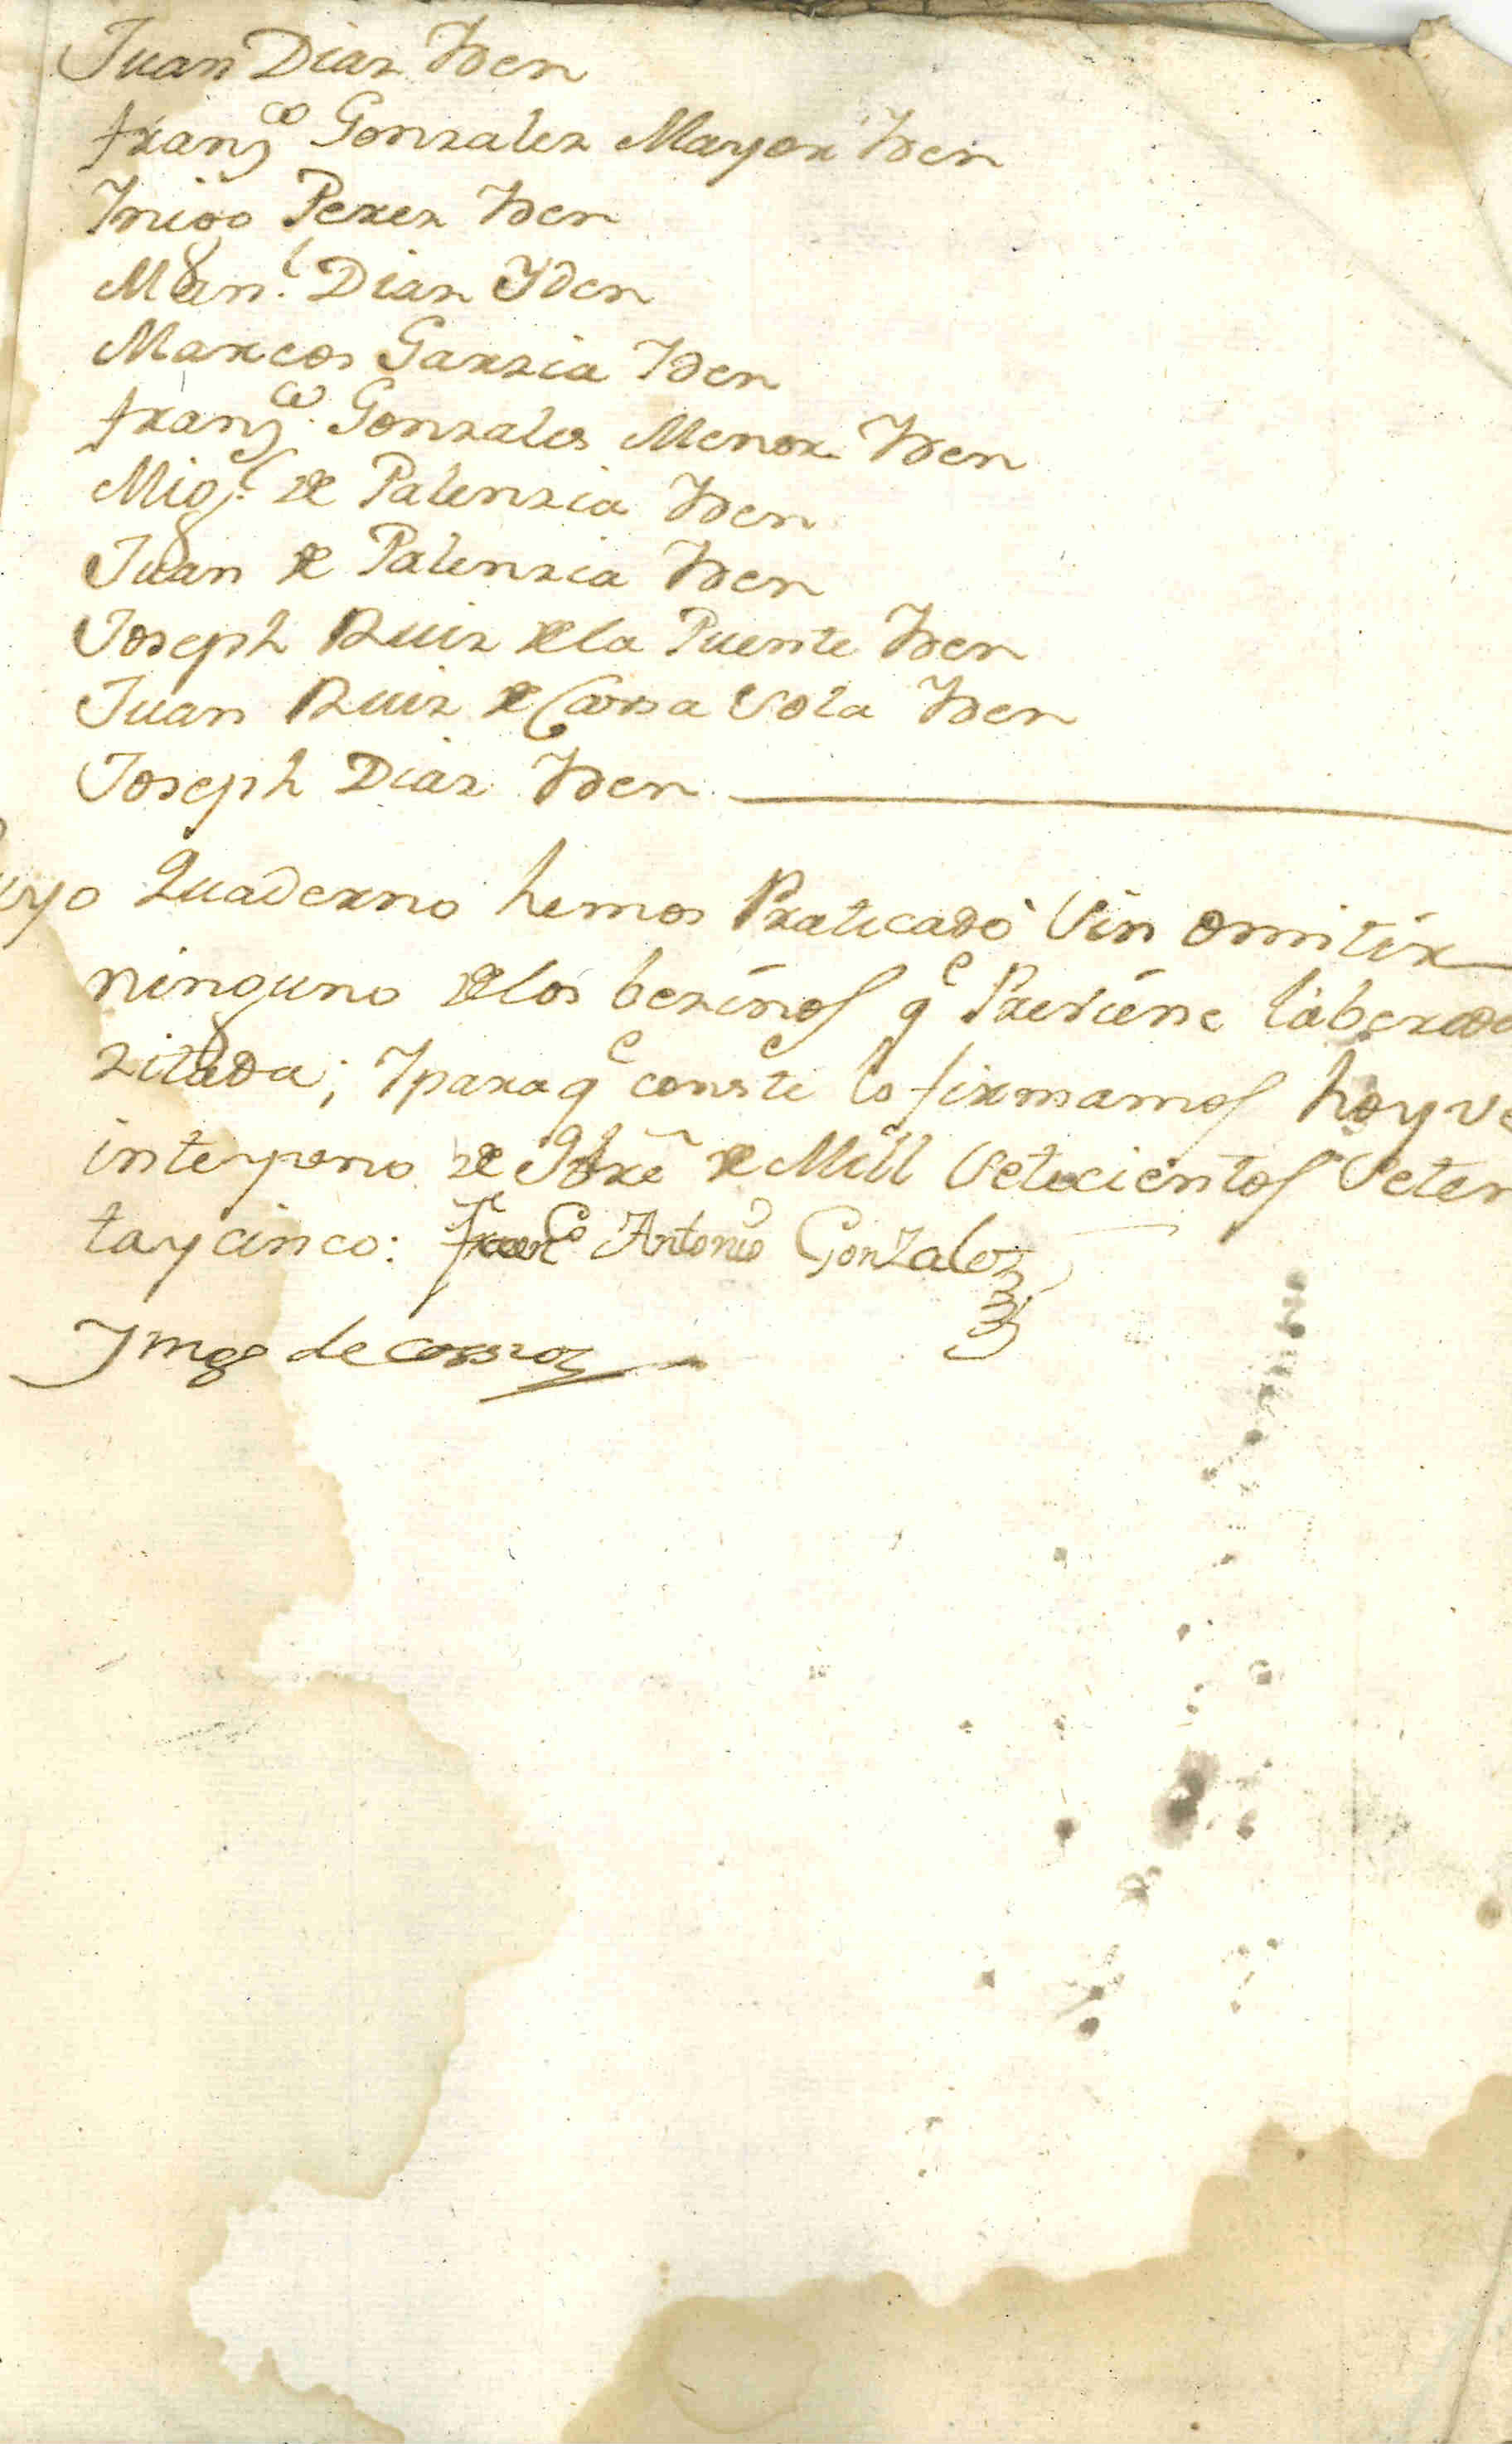 Juan Diaz Yden
franco Gonzalez Mayor Yden
Ynigo Perez Yden
Manl. Diaz Yden
Marcos Garzia Yden
franco. Gonzales Menor Yden
Migl. de Palenzia Yden
Juan de Palenzia Yden
Joseph Ruiz dela Puente Yden
Juan Ruiz de Cossa Sola Yden
Joseph Diaz Yden
uyo Quaderno hemos Praticado Sin omitir
ninguno delos bezinos qe Previene la
zitada; Ypara qe conste lo firmamos hoy ve
inteyuno de de Mill Setecientos Seten
taycinco: Franco Antonio Gonzalez
de cossio